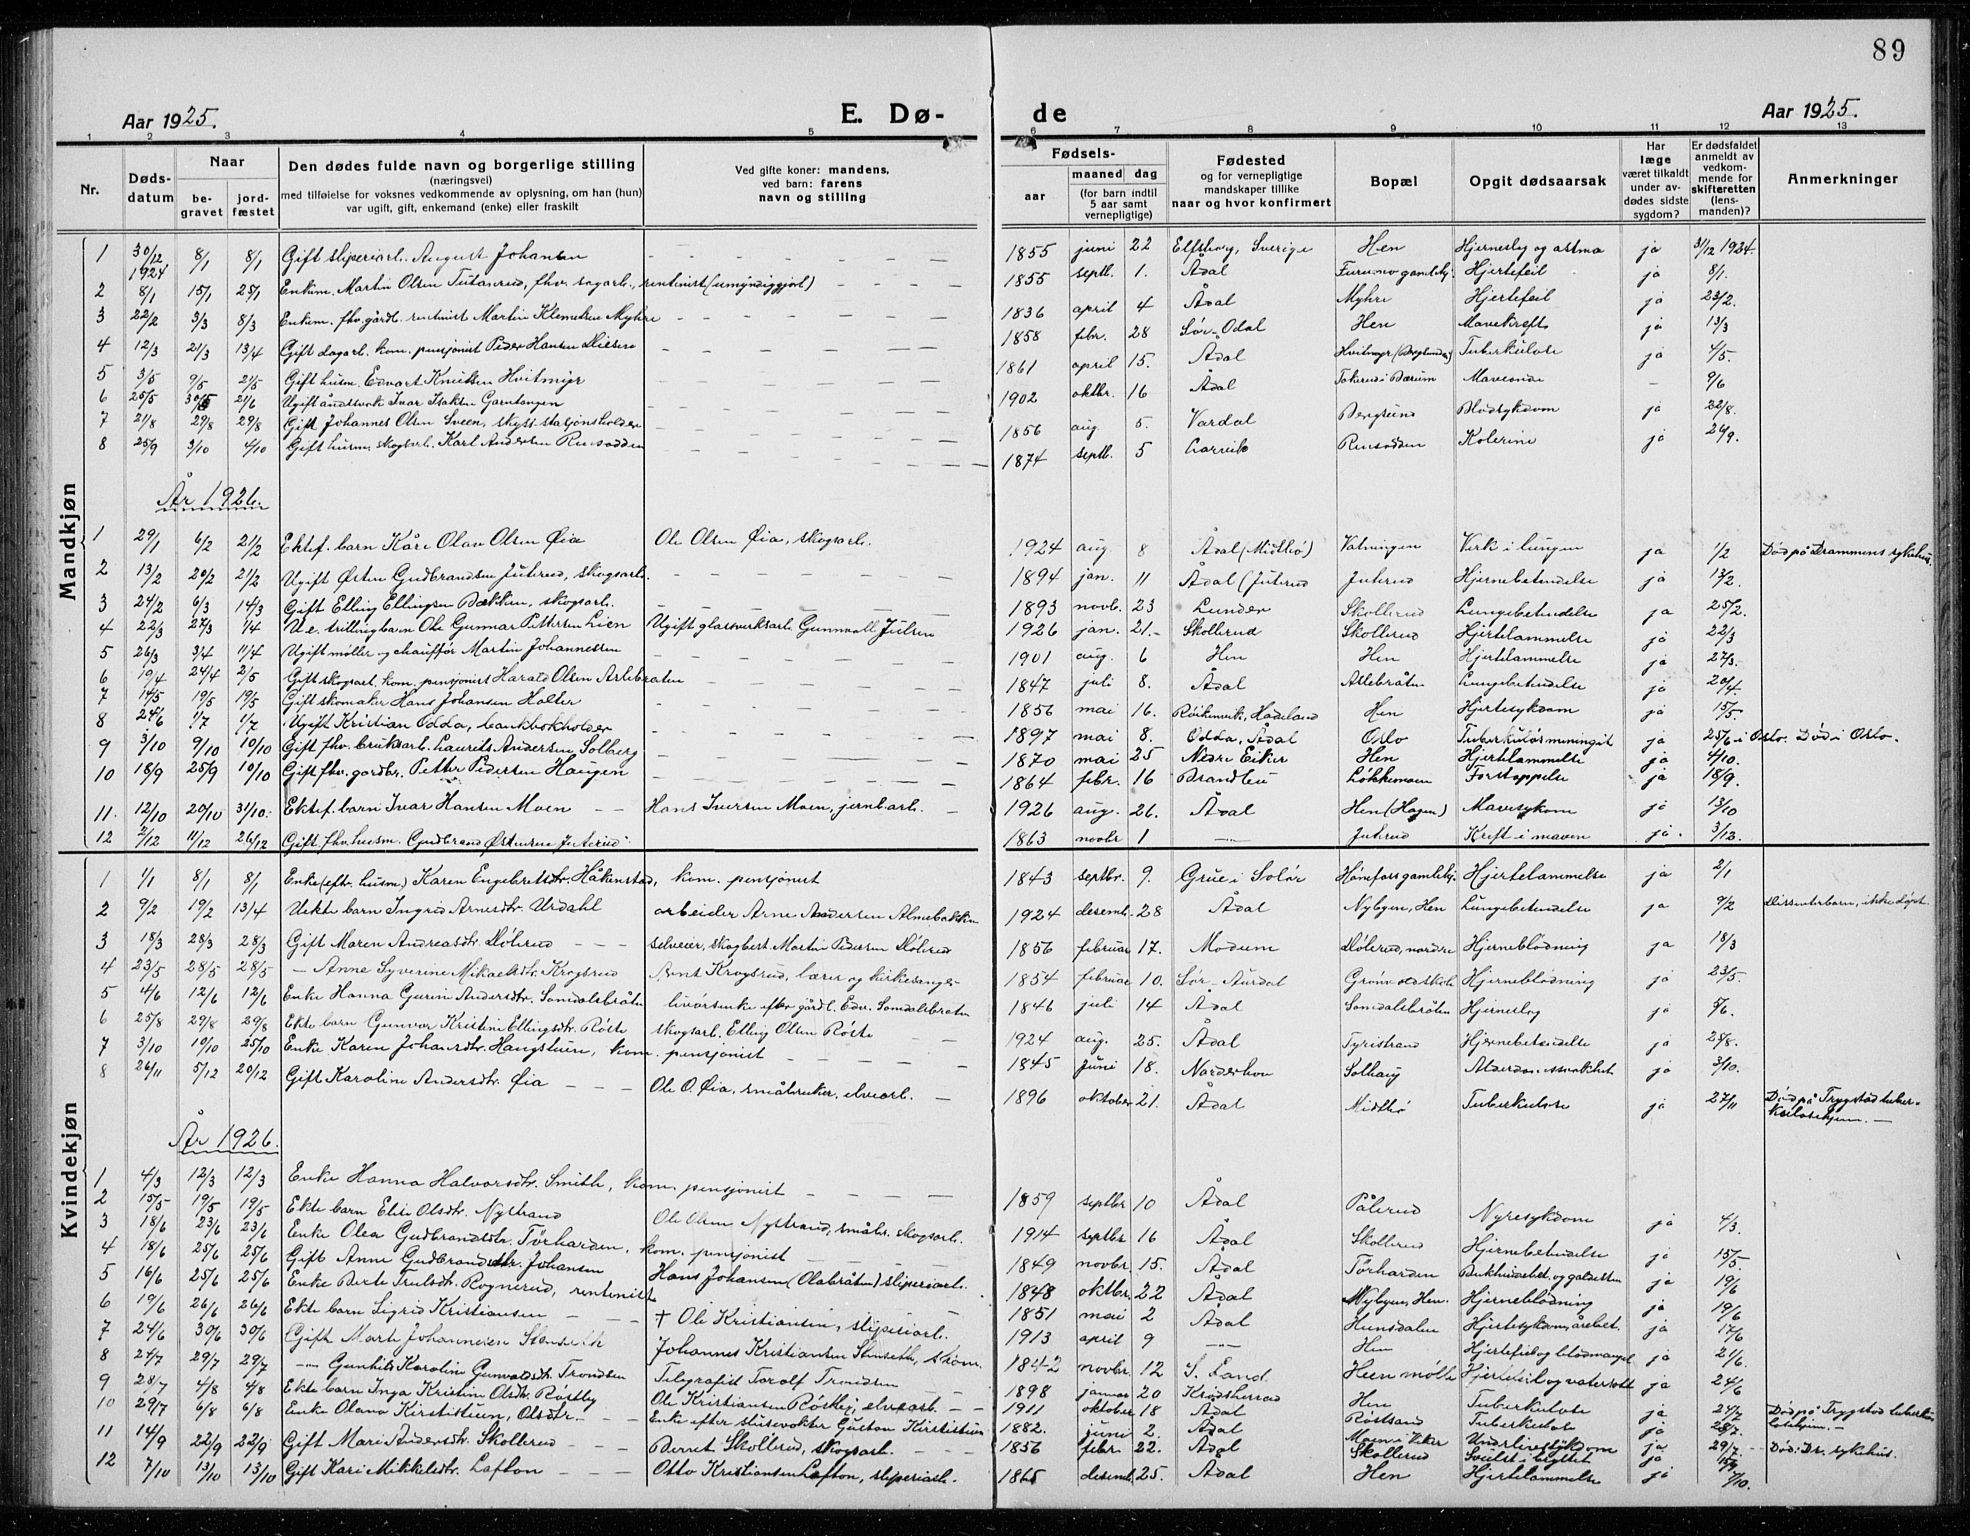 89
Aar 1925. E. Dø- de Aar 1925.
1 2 3 4 5 6 7 8 9 10 11 12 13
Nr. Døds-datum Naar be-gravet jord-fæstet Den dødes fulde navn og borgerlige stilling (næringsvei) med tilføielse for voksnes vedkommende av oplysning, om han (hun) var ugift, gift, enkemand (enke) eller fraskilt Ved gifte koner: mandens, ved barn: farens navn og stilling Fødsels- aar maaned dag (for barn indtil 5 aar samt vernepligtige) Fødested og for vernepligtige mandskaper tillike naar og hvor konfirmert Bopæl Opgit dødsaarsak Har læge været tilkaldt under av-dødes sidste sygdom? Er dødsfaldet anmeldt av vedkom-mende for skifteretten (lens-manden)? Anmerkninger
Mandkjøn
1 30/12 1924 8/1 8/1 Gift sliperiarb. August Johansen 1855 juni 22 Elfsborg, Sverige Hen Hjerneslag og astma ja 31/12 1924.
2 8/1 15/1 25/1 Enkem. Martin Olsen Tutanrud, fhv. sagarb., rentenist (umyndiggjort) 1855 septb. 1. Ådal Furumo gamlehj. Hjertefeil ja 8/1.
3 22/2 3/3 8/3 Enkem. fhv. gårdb. rentenist Martin Klemetsen Myhre 1836 april 4 Ådal Myhre Hjertefeil ja 23/2.
4 12/3 21/3 13/4 Gift dagarb. kom. pensjonist Peder Hansen 1858 febr. 28 Sør-Odal Hen Mavekreft ja 13/3
5 3/5 9/5 21/5 Gift husm. Edvart Knutsen Hvitmyr 1861 april 15. Ådal Hvitmyr Tuberkulose ja 4/5.
6 25/5 30/5 21/6 Ugift åndssvak Ivar Isaksen Garntangen 1902 oktbr. 16 Ådal Tokerud i Bærum Maveonde — 9/6
7 21/8 29/8 29/8 Gift Johannes Olsen Sveen, skysstasjonsholder 1856 aug. 5. Vardal Bergsund Blodsykdom ja 22/8.
8 25/9 3/10 4/10 Gift husm. skogsarb. Karl Andersen Rensodden 1874 septb. 5 Larvik Rensodden Kolerine ja 26/9.
År 1926.
1 29/1 6/2 21/2 Ektef. barn Kåre Olav Olsen Øia Ole Olsen Øia, skogsarb. 1924 aug. 8 Ådal (Midtbø) Vatningen Verk i lungen ja 1/2 Død på Drammens sykehus.
2 13/2 20/2 21/2 Ugift Østen Gudbrandsen Juterud, skogsarb. 1894 jan. 11 Ådal (Juterud Juterud Hjernebetendelse ja 13/2.
3 24/2 6/3 14/3 Gift Elling Ellingsen Bækken, skogsarb. 1893 novb. 23 Lunder Skollerud Lungebetendelse ja 25/2.
4 22/3 27/3 1/4 U.e. trillingbarn Ole Gunnar Pettersen Lien Ugift glassverksarb. Gunvall Julsen 1926 jan. 21.- Skollerud Skollerud Hjertelammelse ja 22/3
5 26/3 3/4 11/4 Ugift møller og chauffør Martin Johannessen 1901 aug. 6 Hen Hen Hjertelammelse ja 27/3.
6 19/4 24/4 2/5 Gift skogsarb. kom. pensjonist Harald Olsen Aslebråten 1847 juli 8. Ådal Aslebråten Lungebetendelse ja 20/4.
7 14/5 19/5 19/5 Gift skomaker Hans Johansen Holter 1856 mai 16. Røikenvik, Hadeland Hen Hjertesykdom ja 15/5.
8 24/6 1/7 1/7 Ugift Kristian Odda, bankbokholder 1897 mai 8. Odda, Ådal Oslo Tuberkuløs meningit ja 25/6 i Oslo. Død i Oslo.
9 3/10 9/10 10/10 Gift fhv. bruksarb. Laurits Andersen Solberg 1870 mai 25 Nedre Eiker Hen Hjertelammelse ja 4/10.
10 18/9 25/9 10/10 Gift fhv. gårdbr. Petter Pedersen Haugen 1864 febr. 16 Brandbu Løkkemoen Forstoppelse ja 18/9.
11. 12/10 20/10 31/10. Ektef. barn Ivar Hansen Moen Hans Iversen Moen, jernb.arb. 1926 aug. 26. Ådal Hen (Hagen) Mavesykom ja 13/10
12 2/12 11/12 26/12 Gift fhv. husm. Gudbrand Østensen Juterud 1863 novbr 1 — Juterud Kreft i maven ja. 3/12.
Kvindekjøn
1 1/1 8/1 8/1 Enke (eftr. husm.) Karen Engebretsdtr. Håkenstad, kom. pensjonist 1843 septbr. 9. Grue i Solør Hønefoss gamlehj. Hjertelammelse ja 2/1
2 9/2 19/2 13/4 Uekte barn Ingrid Arnesdtr. Urdahl arbeider Arne Andersen Almebakken 1924 desemb. 28 Ådal Nybyen, Hen Lungebetendelse ja 9/2 Dissenterbarn, ikke døpt.
3 18/3 28/3 28/3 Gift Maren Andreasdtr. selveier, skogbest. Martin Pedersen 1856 februar 17. Modum nordre Hjerneblödning ja 18/3
4 23/5 28/5 28/5 — Anne Syverine Mikaelsdtr. Krogsrud Krogsrud, lærer og kirkesanger 1854 februar 10. Sør-Aurdal Grønvold skole Hjerneblödning ja 23/5.
5 4/6 12/6 12/6 Enke Hanna Gurine Andersdtr. Somdalsbråten livørsenke efter gårdb. Edv. Somdalsbråten 1846 juli 14 Ådal Somdalsbråten Hjerneslag ja 5/6.
6 25/8 29/8 29/8 Ekte barn Gunvor Kristine Ellingsdtr. Röste skogsarb. Elling Olsen Röste 1924 aug. 25. Ådal Tyristrand Hjernebetendelse ja 25/8.
7 3/10 10/10 25/10 Enke Karen Johansdtr. Haugstuen, kom. pensjonist 1845 Juni 18. Norderhov Solhaug Alderdomssvakhet ja 3/10.
8 26/11 5/12 20/12 Gift Karoline Andersdtr. Øia Ole O. Øia, småbruker, elvearb. 1896 oktober 21. Ådal Midtbø Tuberkulose ja 27/11 Død på Trygstad tuber-kulosehjem. —
År 1926.
1 4/3 12/3 12/3 Enke Hanna Halvorsdtr. Smith, kom. pensjonist 1859 septbr 10 Ådal Pålerud Nyresykdom ja 4/3.
2 15/5 19/5 19/5 Ekte barn Elise Olsdtr. Nystrand Ole Olsen Nystrand, småbr. skogsarb. 1914 septbr 16 Ådal Skollerud Hjernebetendelse ja 15/5.
3 18/6 23/6 23/6 Enke Olea Gudbrandsdtr. Törharden, kom. pensjonist 1849 novbr. 15. Ådal Törharden Bukhindebet. og galdesten ja 19/6
4 18/6 25/6 25/6 Gift Anne Gudbrandsdtr. Johansen Hans Johansen (Olabråten) sliperiarb. 1848 oktbr. 22 Ådal Nybyen, Hen. Hjerneblödning ja 19/6
5 16/6 25/6 25/6 Enke Berte Trulsdtr. Rognerud, rentenist 1851 mai 2 Ådal Hunsdalen Hjertesykdom, årebet. ja 17/6
6 19/6 26/6 26/6 Ekte barn Sigrid Kristiansen + Ole Kristiansen, sliperiarb. 1913 april 9 — Hen Hjertefeil og blodmangel ja 21/6.
7 24/6 30/6 30/6 Gift Marte Johannesen Stenseth Johannes Kristiansen Stenseth, skom. 1842 novbr. 12 S. Land. Heen mølle Hjertefeil og vatersott ja 24/6
8 24/7 29/7 29/7 — Gunhild Karoline Gunvaldsdtr. Trondsen Telegrafist Torolf Trondsen 1898 januar 20 Krødsherred Hen Tuberkulose ja 24/7 Død på Trygstad tuberkulosehjem.
9 28/7 4/8 4/8 Ekte barn Inga Kristine Olsdtr. Röstby Ole Kristiansen Röstby, elvearb. 1911 oktober 18 Ådal Röstsand Tuberkulose ja 28/7.
10 29/7 6/8 6/8 Enke Olava Kirstistuen, Olsdtr. Enke efter slusevokter Gustav Kirstistuen 1882. juni 2. Ådal Moen i Viker Underlivssykdom ja 29/7. Død: Dr. sykehus.
11 14/9 22/9 22/9 Gift Mari Andersdtr. Skollerud Bernt Skollerud, skogsarb. 1856 febr. 22. Ådal Skollerud Svulst i brystet ja 15/9.
12 7/10 13/10 13/10 Gift Kari Mikkelsdtr. Lafton Otto Kristiansen Lafton, sliperiarb. 1865 desemb. 25. Ådal Hen Hjertelammelse ja 7/10.